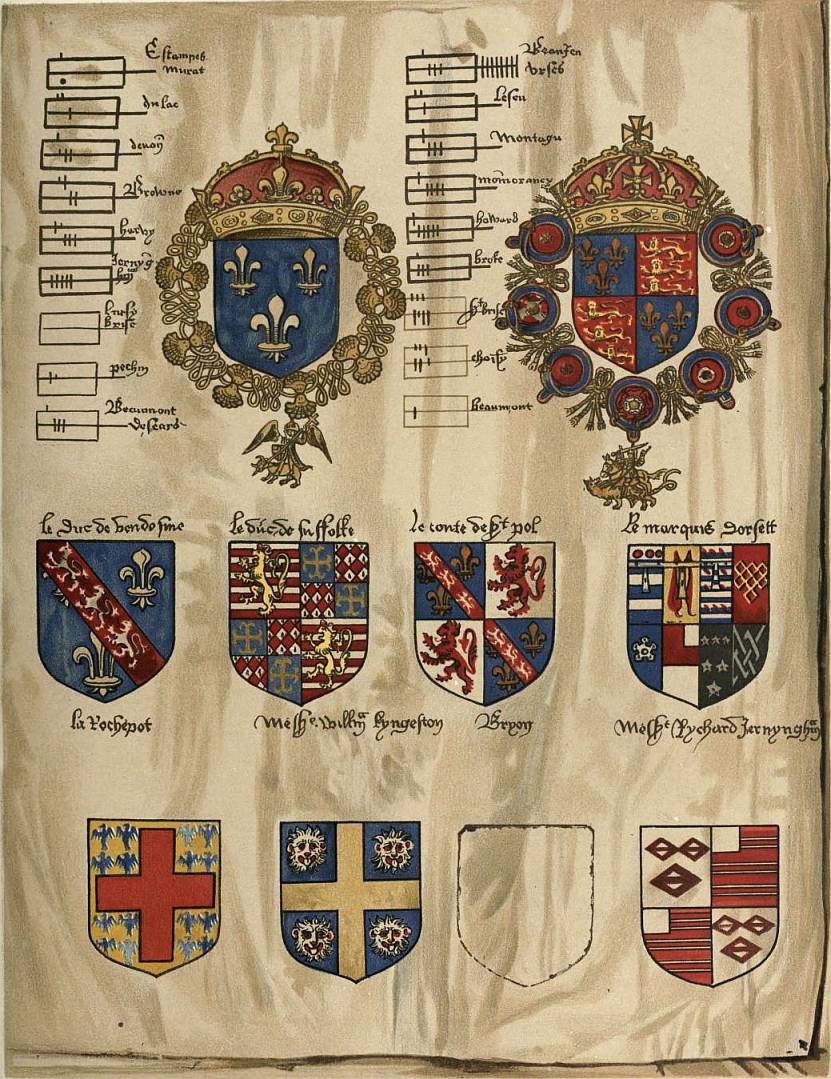 Estampes
murat
du lac
Browne
hervy
Jernyg
brise
pechy
Beaumont
Beausen
Leseu
Montagu
momorancy
haward
broke
brise
choisy
beaumont
le duc de vendosme
le duc de suffolke
le conte de st pol
le marquis dorsett
la Rochepot
Kyngeston
Bryon
Rychard Jernyngham